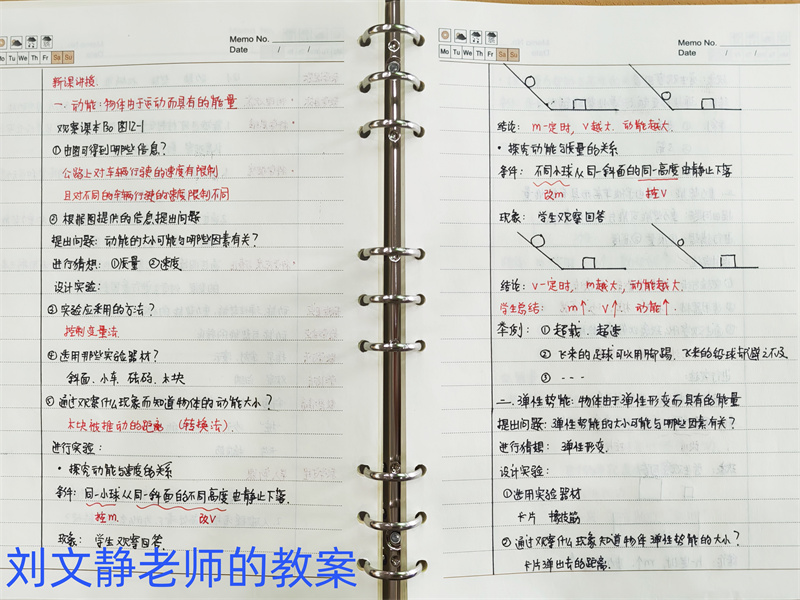 Memo No.
Date / /
Mo Tu We Th Fr Sa Su
新课讲授
一. 动能: 物体由于运动而具有的能量
观察课本P60图12-1
①由图可得到哪些信息?
公路上对车辆行驶的速度有限制
且对不同的车辆行驶的速度限制不同
②根据图提供的信息提出问题
提出问题: 动能的大小可能与哪些因素有关?
进行猜想: ①质量 ②速度
设计实验:
③实验应采用的方法?
控制变量法
④选用哪些实验器材?
斜面、小车、砝码、木块
⑤通过观察什么现象而知道物体的动能大小?
木块被推动的距离 (转换法).
进行实验:
• 探究动能与速度的关系
条件: 同一小球从同一斜面的不同高度由静止下落.
控m. 改V
现象: 学生观察回答.
刘文静老师的教案
Memo No.
Date / /
Mo Tu We Th Fr Sa Su
结论: m一定时, V越大, 动能越大.
• 探究动能与质量的关系
条件: 不同小球从同一斜面的同一高度由静止下落
改m 控V
现象: 学生观察回答
结论: V一定时, m越大, 动能越大.
学生总结: m↑ V↑ 动能↑.
举例: ①超载、超速
②飞来的足球可以用脚踢, 飞来的铅球却避之不及
③ ---
二. 弹性势能: 物体由于弹性形变而具有的能量
提出问题: 弹性势能的大小可能与哪些因素有关?
进行猜想: 弹性形变.
设计实验:
①选用实验器材
卡片 橡皮筋
②通过观察什么现象知道物体弹性势能的大小?
卡片弹出去的距离.